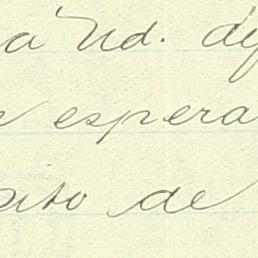 a Ud. dig
e espera
ato de